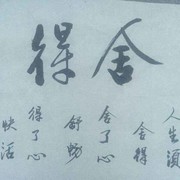 舍得
人生須
舍得
舍了心
舒畅
得了心
快活